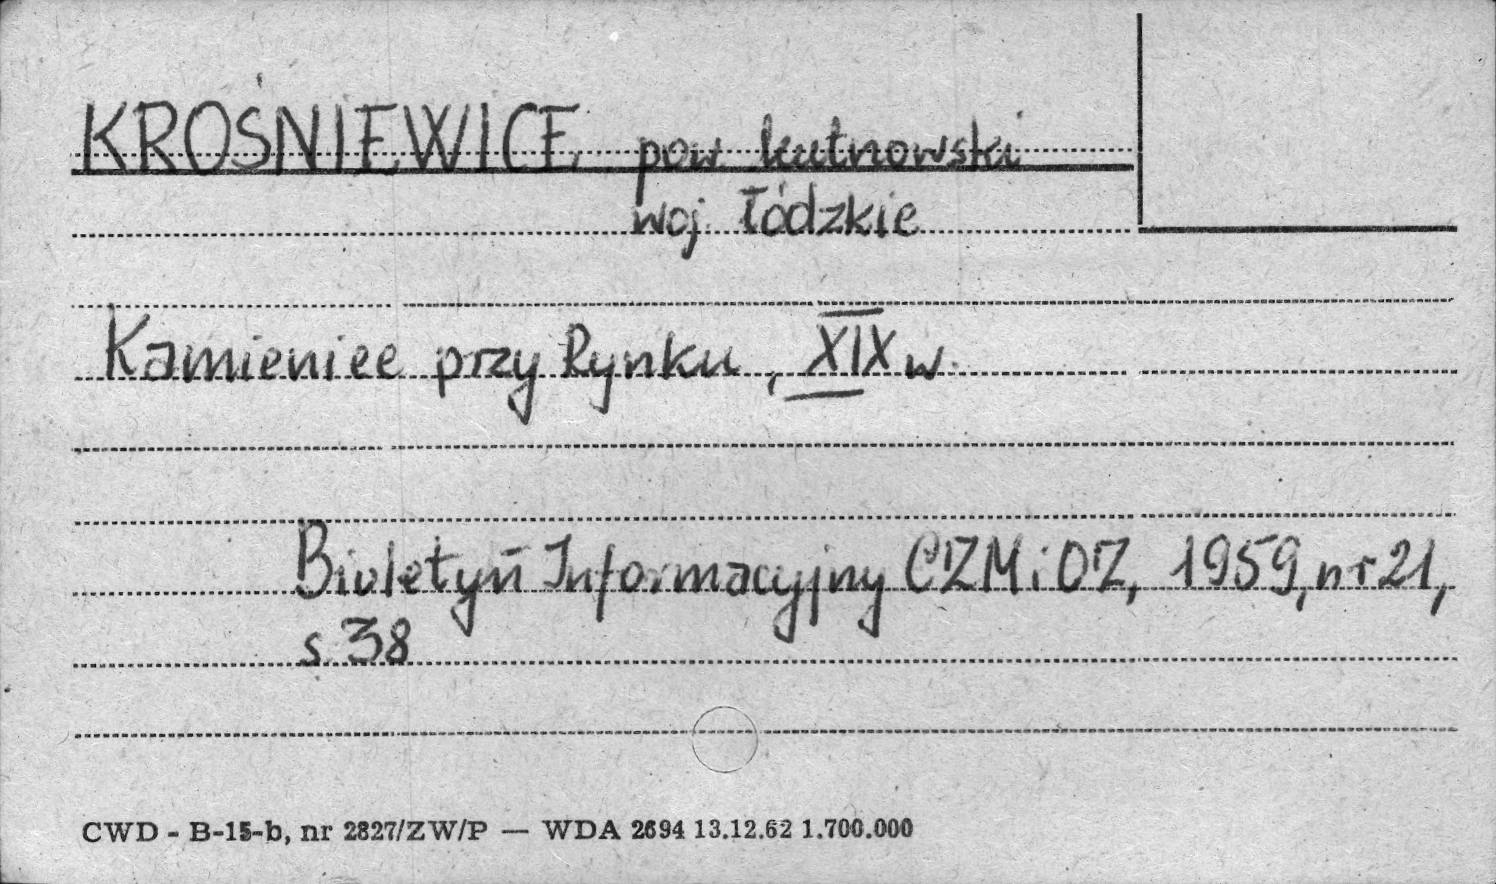 KROŚNIEWICE pow kutnowski
woj. łódzkie
Kamienice przy Rynku, XIX w.
Biuletyń Informacyjny CZMiOZ, 1959, nr 21,
s. 38
CWD - B-15-b, nr 2827/ZW/P — WDA 2694 13.12.62 1.700.000